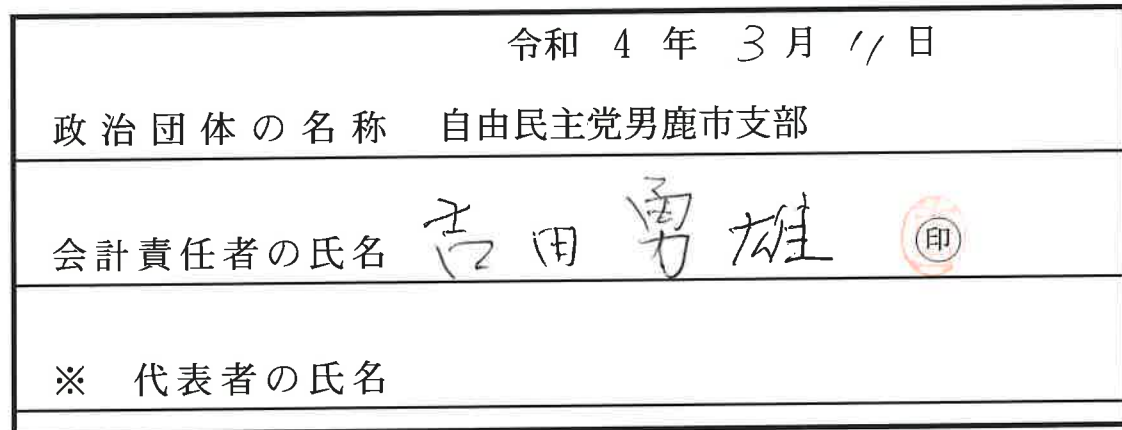 令和 4 年 3 月 11 日
政治団体の名称 自由民主党男鹿市支部
会計責任者の氏名 吉田勇雄 印
※ 代表者の氏名